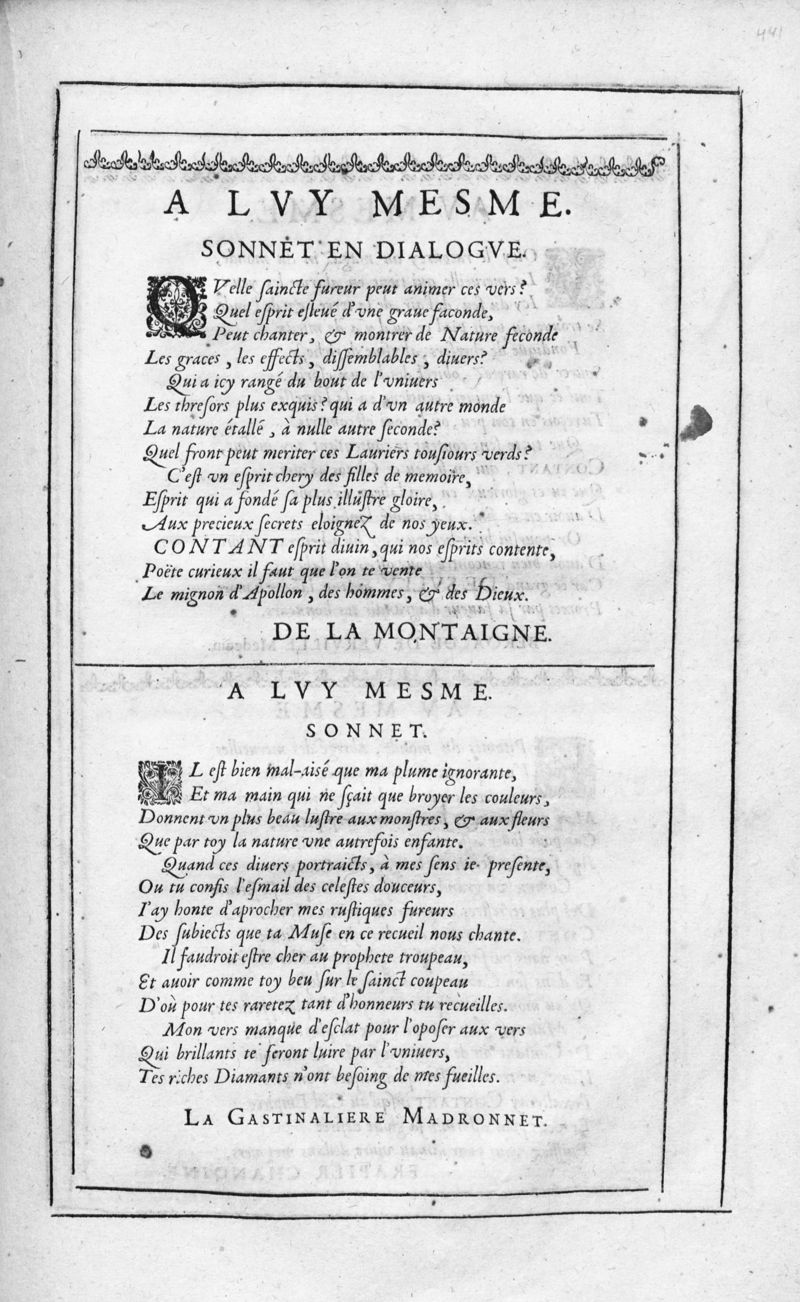 441
A LVY MESME.
SONNET EN DIALOGVE.
QVelle ſaincte fureur peut animer ces vers?
Quel eſprit eſleué d'vne graue faconde,
Peut chanter, & montrer de Nature feconde
Les graces, les effects, diſſemblables, diuers?
Qui a icy rangé du bout de l'vniuers
Les threſors plus exquis? qui a d'vn autre monde
La nature étallé, à nulle autre ſeconde?
Quel front peut meriter ces Lauriers touſiours verds?
C'eſt vn eſprit chery des filles de memoire,
Eſprit qui a fondé ſa plus illuſtre gloire,
Aux precieux ſecrets eloignez de nos yeux.
CONTANT eſprit diuin, qui nos eſprits contente,
Poëte curieux il faut que l'on te vente
Le mignon d'Apollon, des hommes, & des Dieux.
DE LA MONTAIGNE.
A LVY MESME.
SONNET.
IL eſt bien mal-aisé que ma plume ignorante,
Et ma main qui ne ſçait que broyer les couleurs,
Donnent vn plus beau luſtre aux monſtres, & aux fleurs
Que par toy la nature vne autrefois enfante.
Quand ces diuers portraicts, à mes ſens ie preſente,
Ou tu confis l'eſmail des celeſtes douceurs,
I'ay honte d'aprocher mes ruſtiques fureurs
Des ſubiects que ta Muſe en ce recueil nous chante.
Il faudroit eſtre cher au prophete troupeau,
Et auoir comme toy beu ſur le ſainct coupeau
D'où pour tes raretez tant d'honneurs tu recueilles.
Mon vers manque d'eſclat pour l'opoſer aux vers
Qui brillants te feront luire par l'vniuers,
Tes riches Diamants n'ont beſoing de mes fueilles.
LA GASTINALIERE MADRONNET.